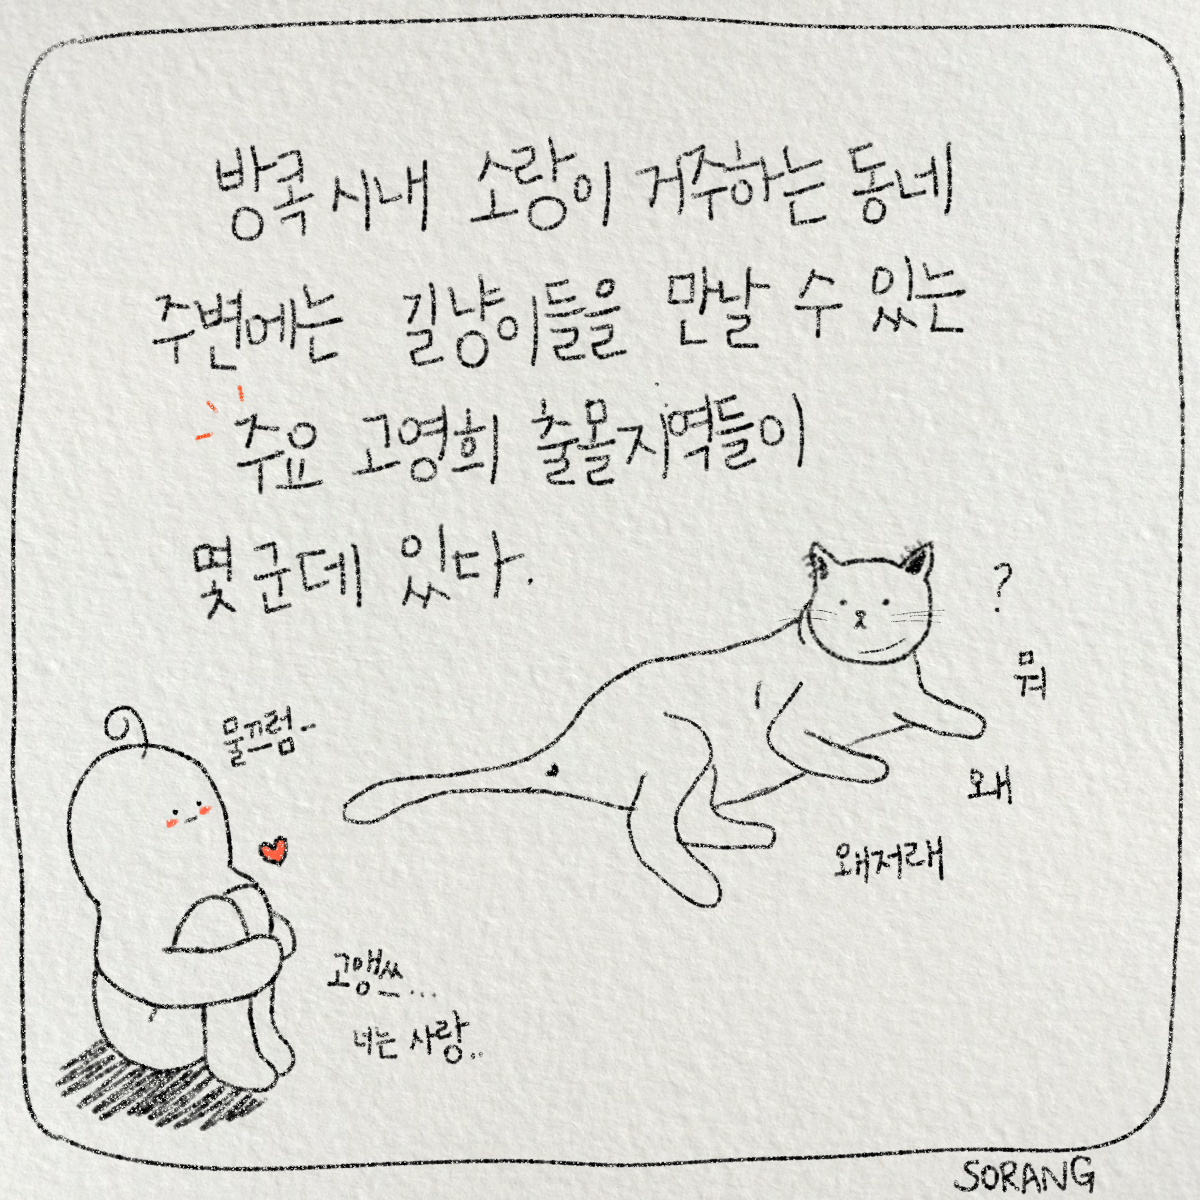 방콕 시내 소랑이 거주하는 동네
주변에는 길냥이들을 만날 수 있는
주요 고영희 출몰지역들이
몇 군데 있다.
?
뭐
왜
왜저래
물끄럼..
고앵쓰...
너는 사랑..
SORANG